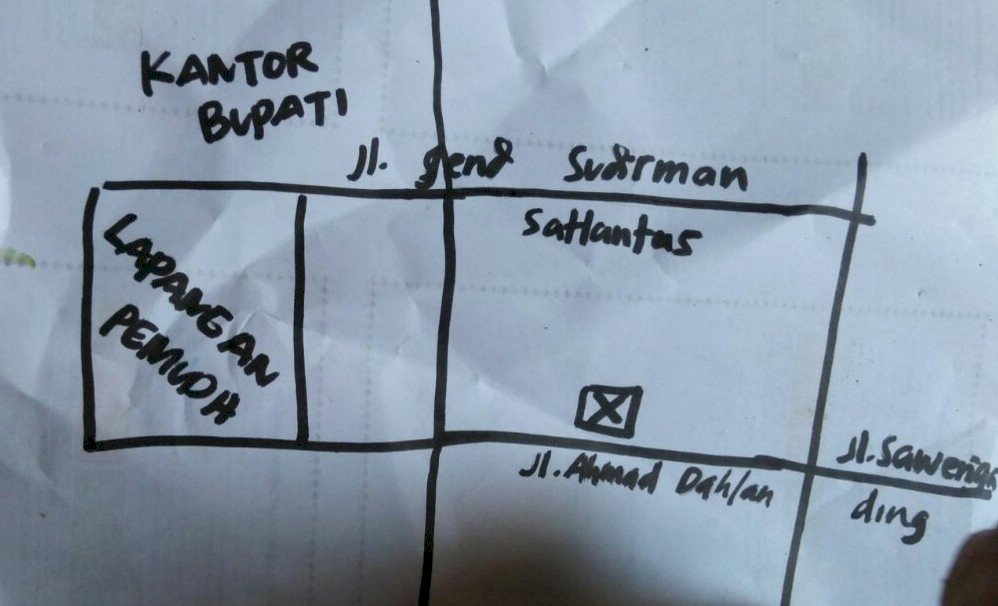 KANTOR
BUPATI
Jl. Jend Sudirman
Satlantas
LAPANGAN
PEMUDA
X
Jl. Ahmad Dahlan
Jl. Saweriga
ding